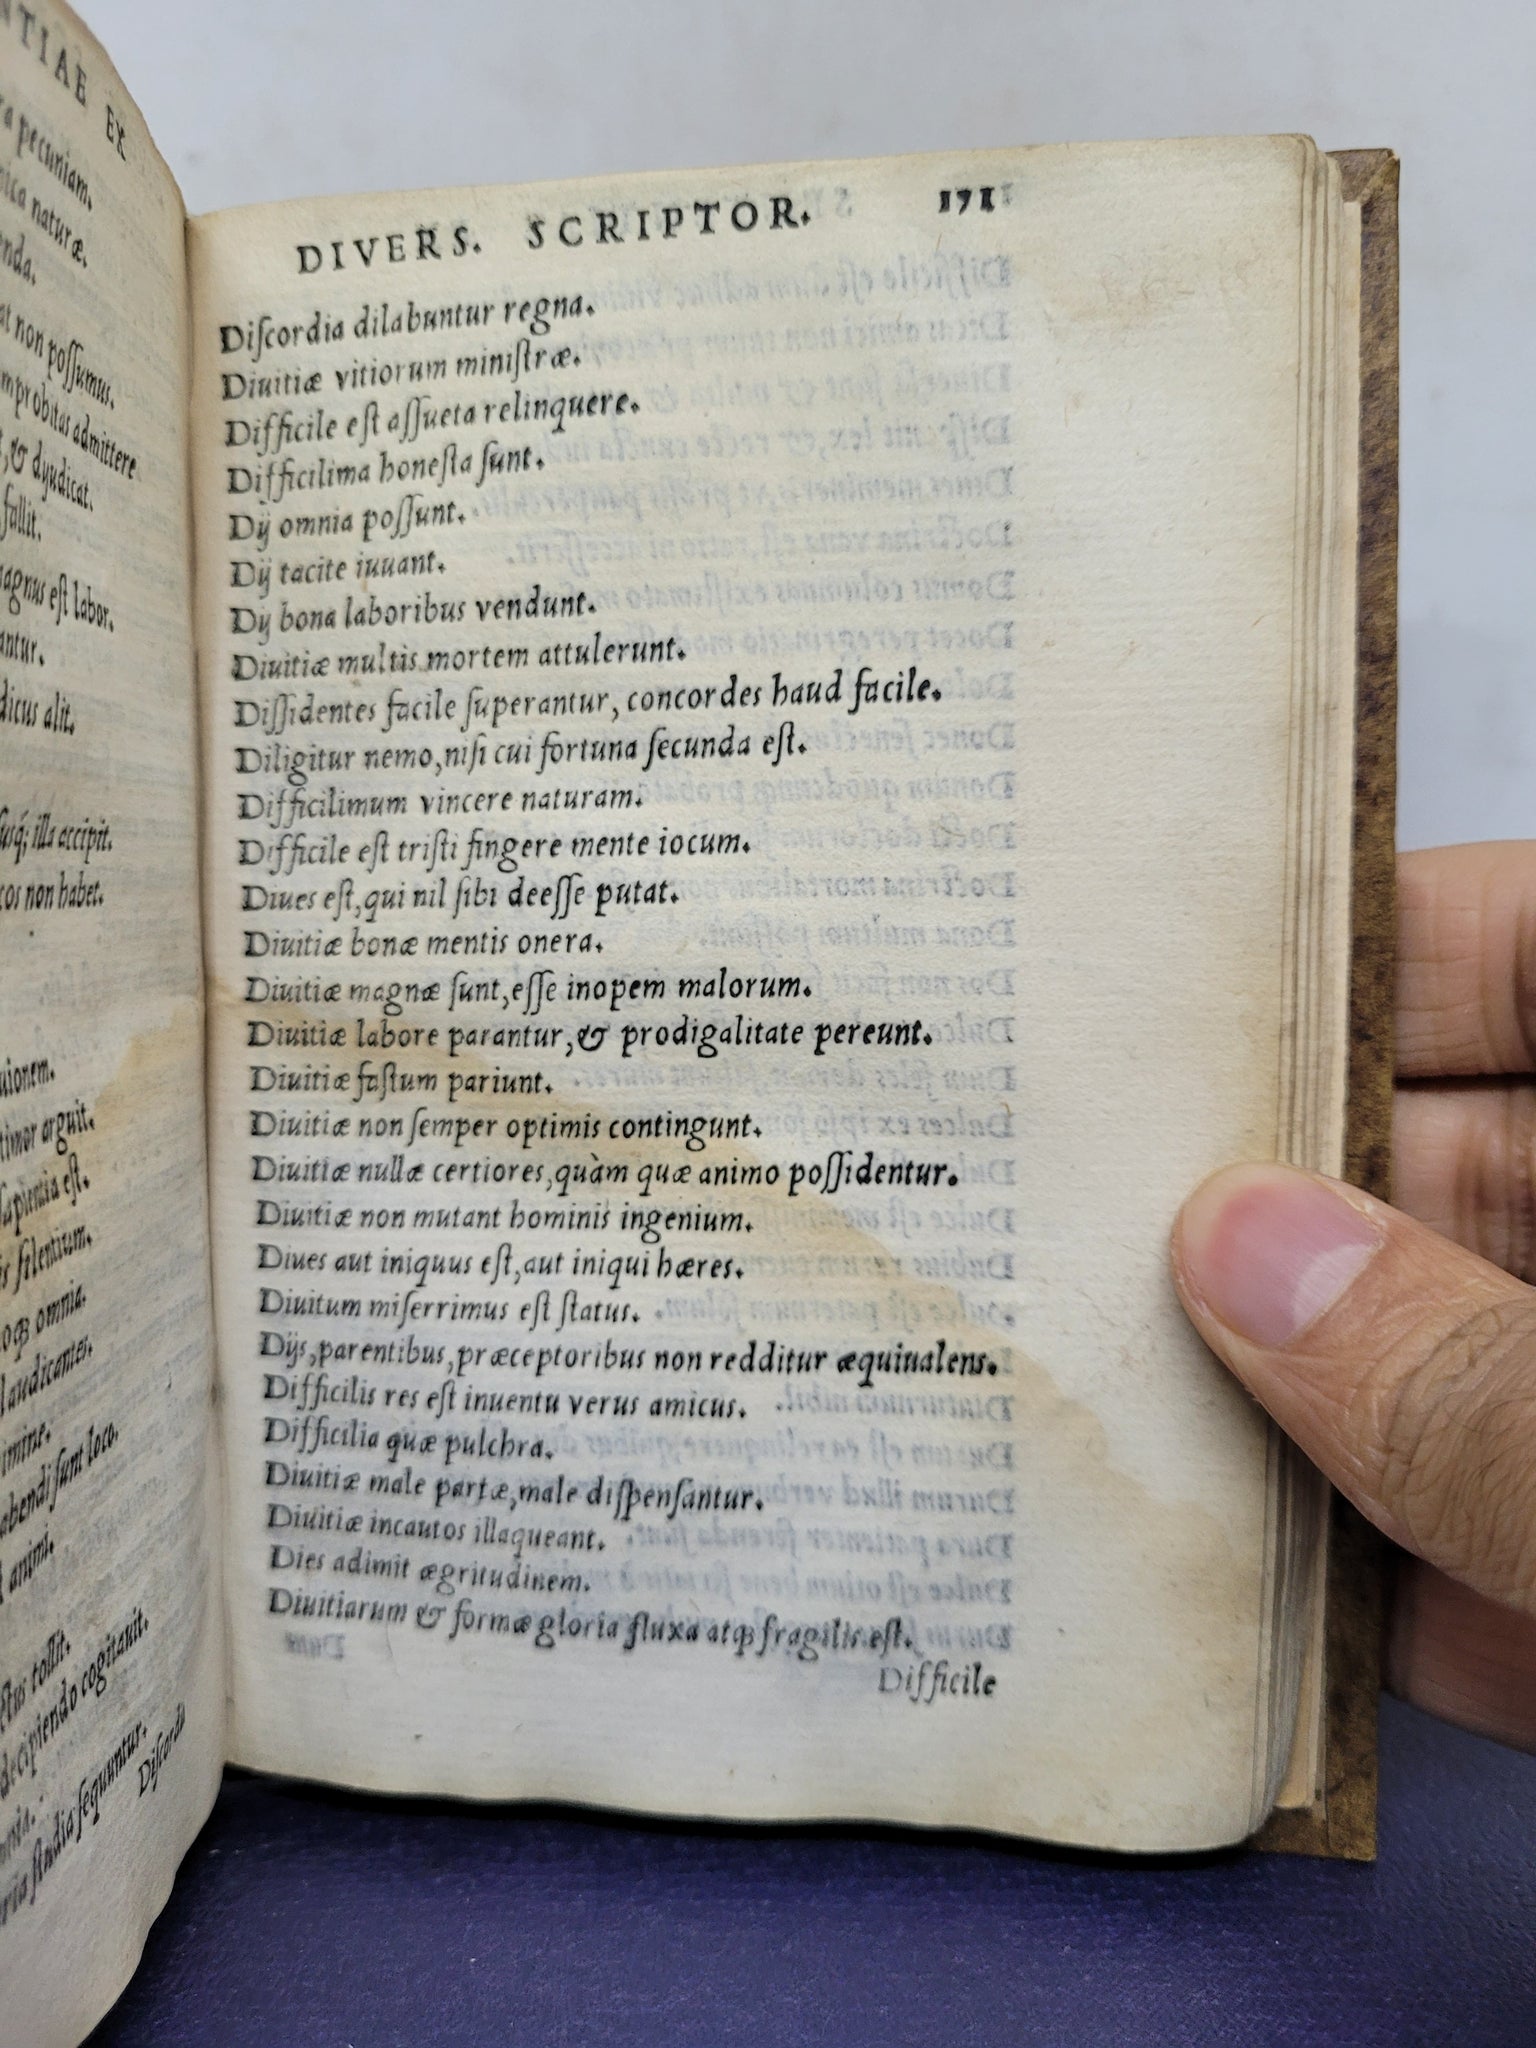 NTIAE EX
pecuniam.
naturæ.
non poſſumus.
admittere
,& dyudicat.
fallit.
eſt labor.
alit.
illa accipit.
non habet.
arguit.
ſapientia eſt.
ſilentium.
omnia.
ſunt loco.
animi.
tollit.
decipiendo cogitauit.
ſtudia ſequuntur.
Diſcordia
DIVERS. SCRIPTOR. 171
Diſcordia dilabuntur regna.
Diuitiæ vitiorum miniſtræ.
Difficile eſt aſſueta relinquere.
Difficilima honeſta ſunt.
Dij omnia poſſunt.
Dij tacite iuuant.
Dij bona laboribus vendunt.
Diuitiæ multis mortem attulerunt.
Diſſidentes facile ſuperantur, concordes haud facile.
Diligitur nemo,niſi cui fortuna ſecunda eſt.
Difficilimum vincere naturam.
Difficile eſt triſti fingere mente iocum.
Diues eſt,qui nil ſibi deeſſe putat.
Diuitiæ bonæ mentis onera.
Diuitiæ magnæ ſunt,eſſe inopem malorum.
Diuitiæ labore parantur,& prodigalitate pereunt.
Diuitiæ faſtum pariunt.
Diuitiæ non ſemper optimis contingunt.
Diuitiæ nullæ certiores,quàm quæ animo poſſidentur.
Diuitiæ non mutant hominis ingenium.
Diues aut iniquus eſt,aut iniqui hæres.
Diuitum miſerrimus eſt ſtatus.
Dijs,parentibus,præceptoribus non redditur æquiualens.
Difficilis res eſt inuentu verus amicus.
Difficilia quæ pulchra.
Diuitiæ male partæ,male diſpenſantur.
Diuitiæ incautos illaqueant.
Dies adimit ægritudinem.
Diuitiarum & formæ gloria fluxa atqꝫ fragilis eſt.
Difficile